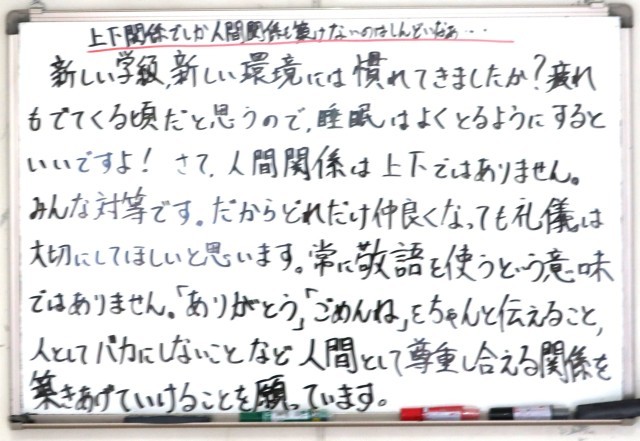 上下関係でしか人間関係も築けないのはしんどいなぁ・・・
新しい学級、新しい環境には慣れてきましたか？疲れ
もでてくる頃だと思うので、睡眠はよくとるようにすると
いいですよ！さて、人間関係は上下ではありません。
みんな対等です。だからどれだけ仲良くなっても礼儀は
大切にしてほしいと思います。常に敬語を使うという意味
ではありません。「ありがとう」「ごめんね」をちゃんと伝えること、
人としてバカにしないことなど人間として尊重し合える関係を
築きあげていけることを願っています。